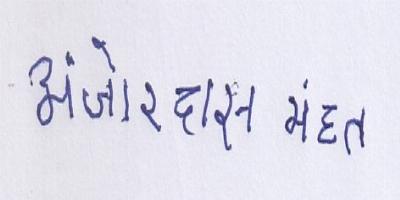 अंजोरदास मंहत